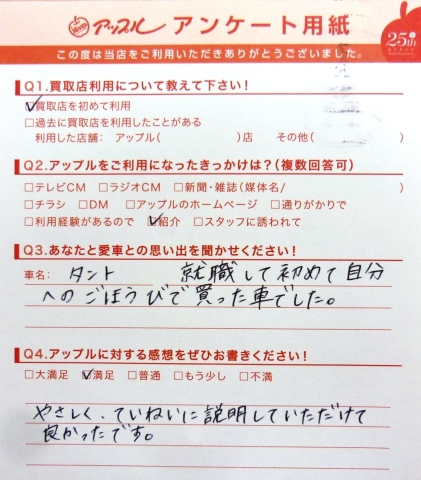 アップル アンケート用紙
この度は当店をご利用いただきありがとうございました。
25th
Q1.買取店利用について教えて下さい!
☑買取店を初めて利用
□過去に買取店を利用したことがある
利用した店舗: アップル( )店 その他(
Q2.アップルをご利用になったきっかけは?(複数回答可)
□テレビCM □ラジオCM □新聞・雑誌(媒体名/ )
□チラシ □DM □アップルのホームページ □通りがかりで
□利用経験があるので ☑紹介 □スタッフに誘われて
Q3.あなたと愛車との思い出を聞かせください!
車名: タント 就職して初めて自分
へのごほうびで買った車でした。
Q4.アップルに対する感想をぜひお書きください!
□大満足 ☑満足 □普通 □もう少し □不満
やさしく、ていねいに説明していただけて
良かったです。